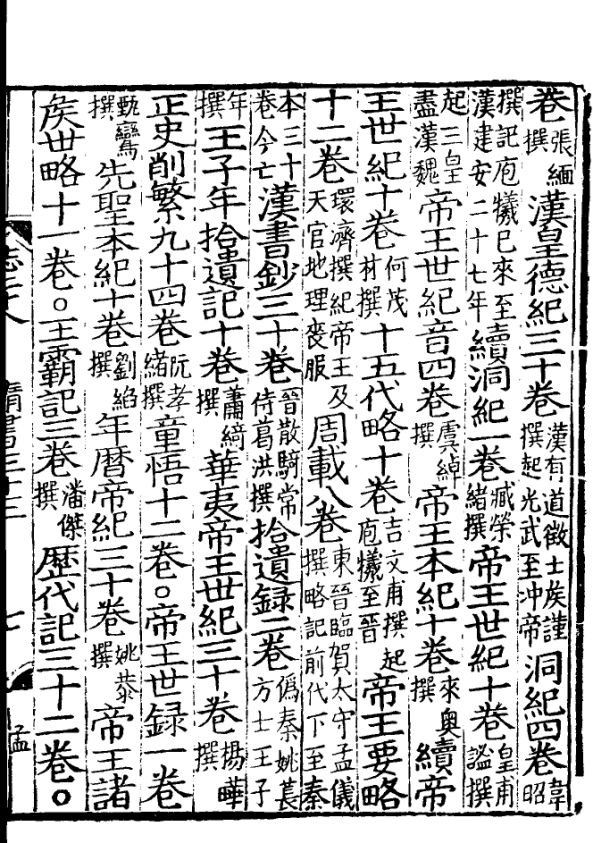 卷張緬撰漢皇德紀三十卷漢有道徵士矦謹撰起光武至冲帝洞紀四卷韋昭
撰記庖犧已來至漢建安二十七年續洞紀一卷臧榮緒撰帝王世紀十卷皇甫謐撰
起三皇盡漢魏帝王世紀音四卷虞綽撰帝王本紀十卷來奧撰續帝
王世紀十卷何茂材撰十五代略十卷吉文甫撰起庖犧至晉帝王要略
十二卷環濟撰紀帝王及天官地理喪服周載八卷東晉臨賀太守孟儀撰略記前代下至秦
本三十卷今亡漢書鈔三十卷晉散騎常侍葛洪撰拾遺録二卷偽秦姚萇方士王子
年撰王子年拾遺記十卷蕭綺撰華夷帝王世紀三十卷楊曄撰
正史削繁九十四卷阮孝緒撰童悟十二卷。帝王世録一卷
甄鸞撰先聖本紀十卷劉縚撰年曆帝紀三十卷姚恭撰帝王諸
矦世略十一卷。王霸記三卷潘傑撰歷代記三十二卷。
隋書三十三
孟